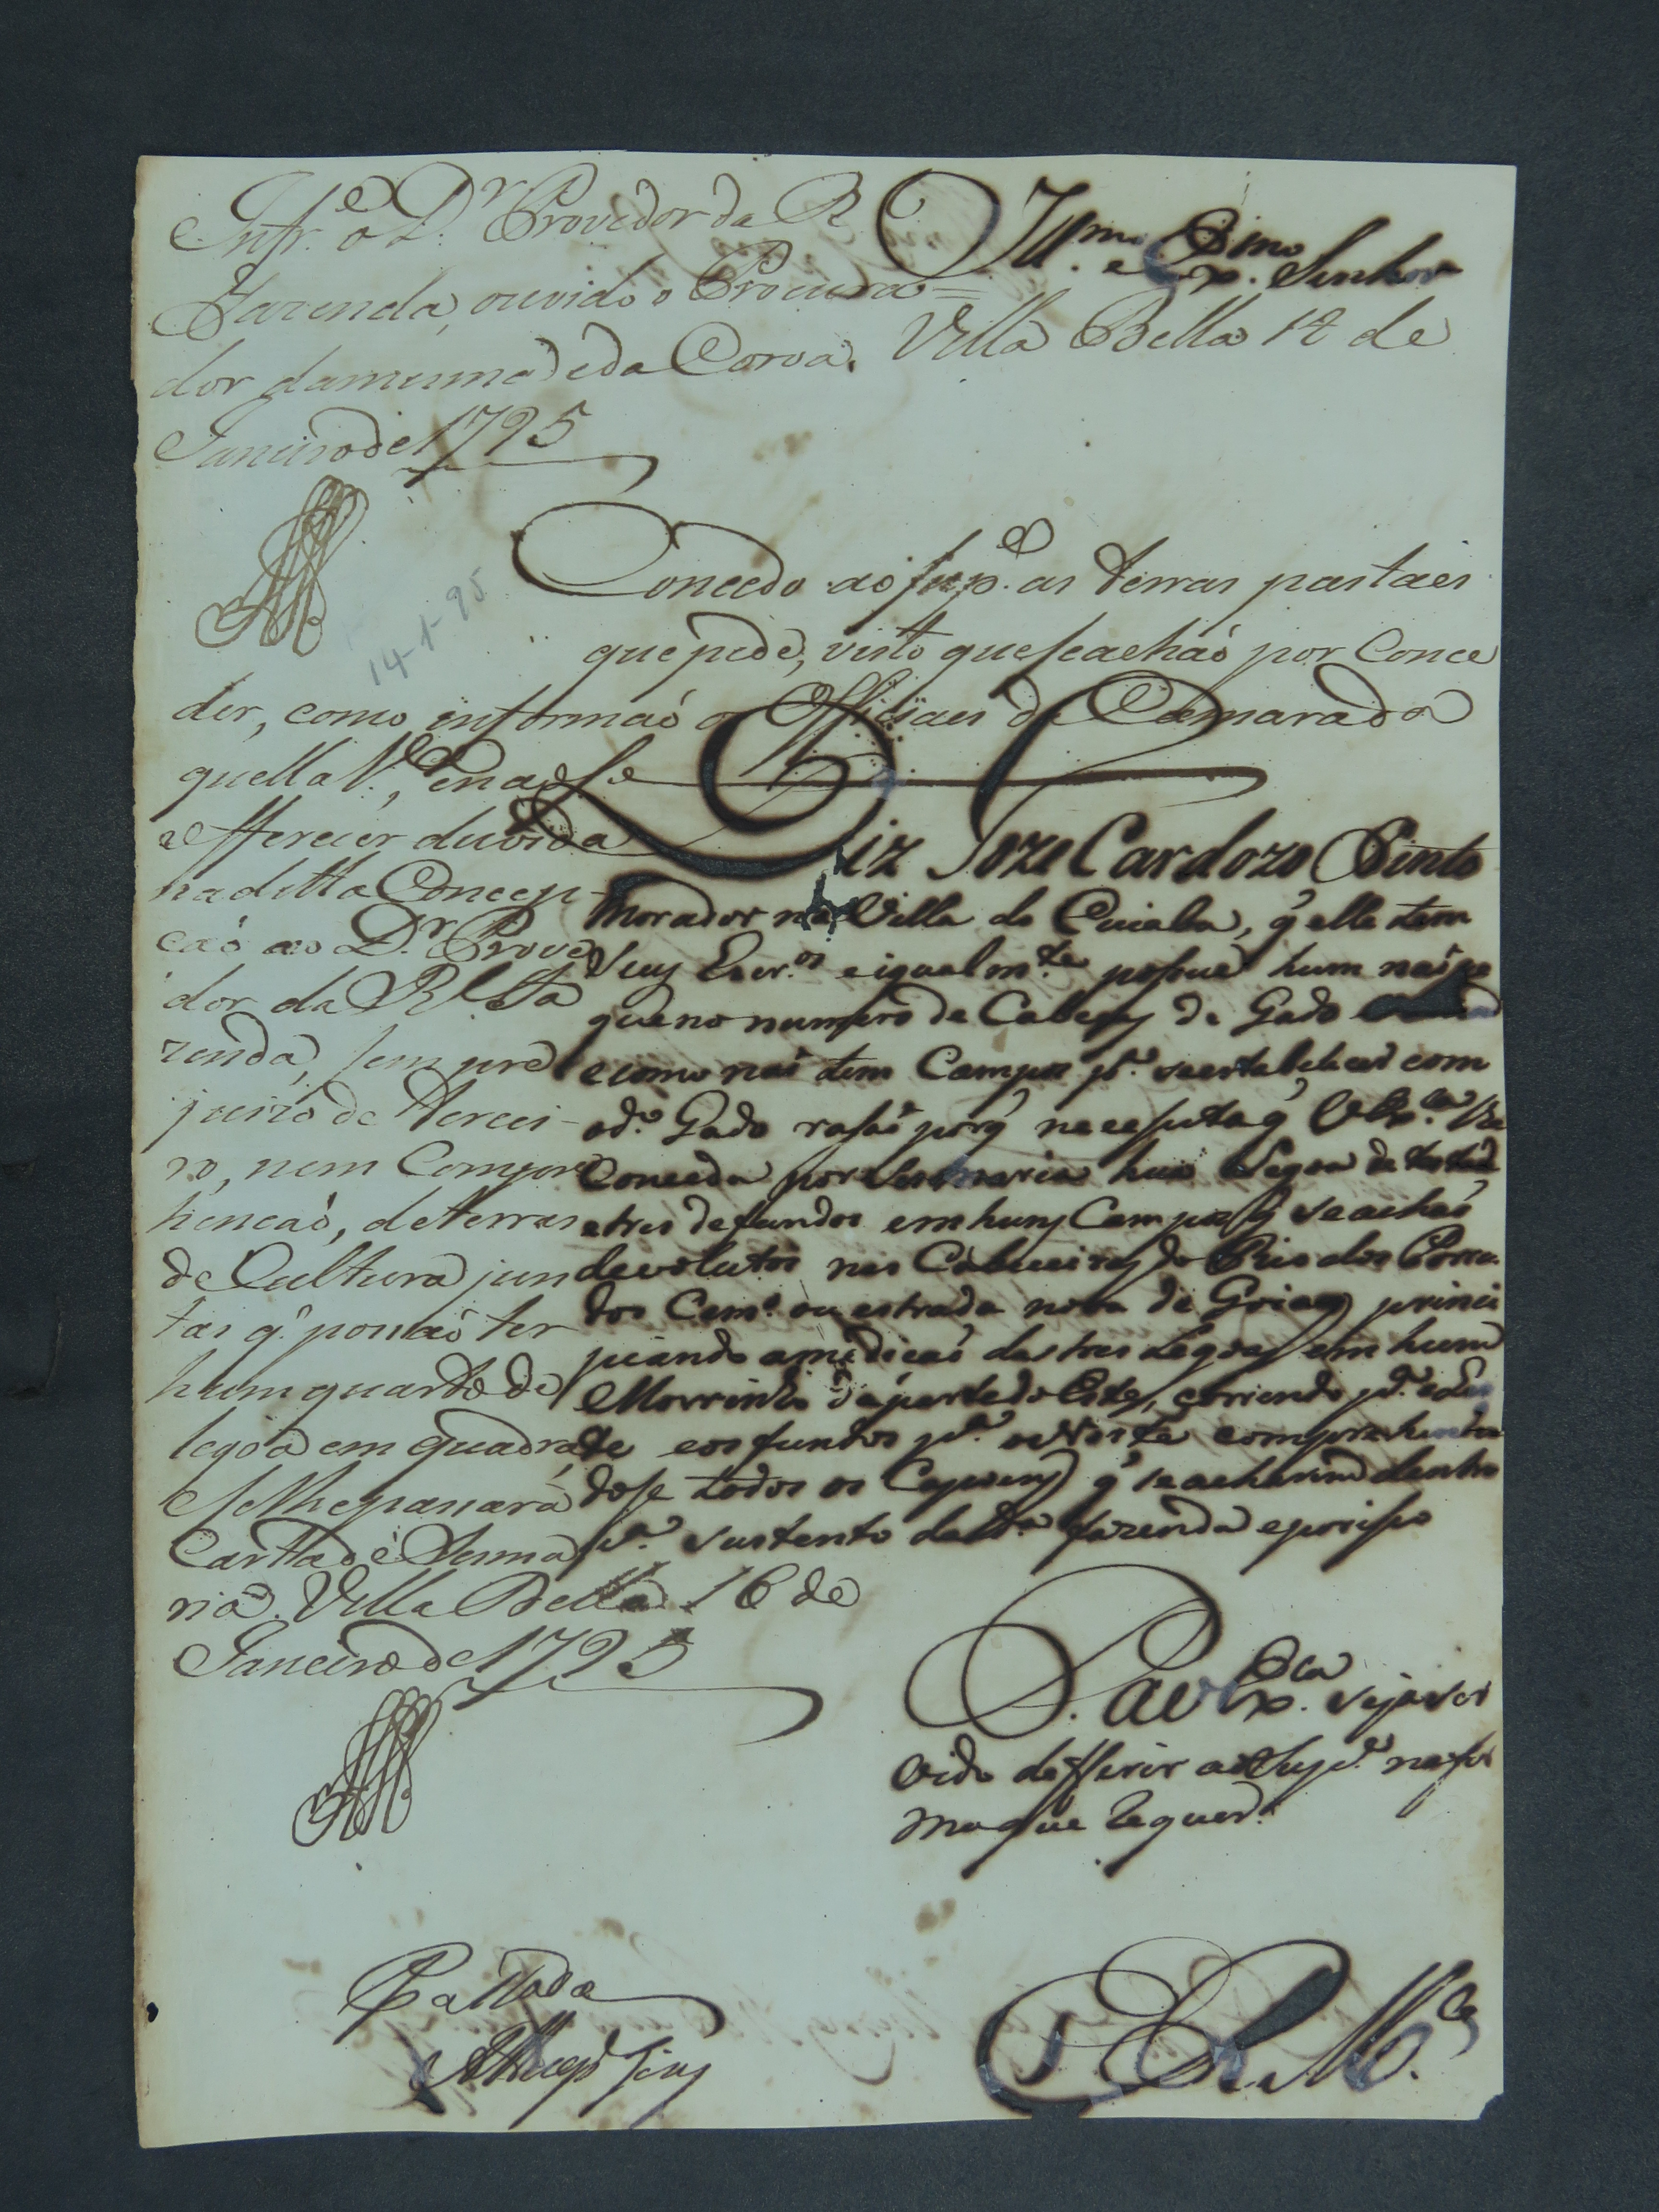 Infr.e o D.r Provedor da R
Fazenda, ouvido o Procura=
dor da mesma e da Coroa. Villa Bella 14 de
Janeiro de 1795
Ill.mo e Ex.mo Senhor
14-1-95
Concedo ao sup.e as terras pastaes
que pede, visto que se achaõ por Conce
der, como informaõ os Officiaes da Camara da
quella V.ª, e naõ se
offerecer duvida
na ditta Concep-
çaõ ao D.r Prove
dor da R.l Fa
zenda, sem pre
juizo de tercei-
ro, nem Compre
hençaõ, de terras
de Cultura jun
tas q. possaõ ter
hum quarto de
legoa em quadra,
e se lhe passará
Carta de Sesma
ria. Villa Bella 16 de
Janeiro de 1795
Diz Joze Cardozo Pinto
morador na Villa do Cuiaba, q̃ elle tem
seus Escr.os e igualm.te possue hum naõ pe
queno numero de Cabeças de Gado
e como naõ tem Campos p.ª se estabelecer com
o d.º Gado rasaõ porq̃ necessita q̃ V Ex.cia lhe
Conceda por Sesmaria hua Legoa de testada
e tres de fundos em huns Campos q̃ se achaõ
devolutos nas Cabeceiras do Rio dos Porru
dos Cam.º ou estrada nova de Goiaz, princi
piando a mediçaõ das tres Legoas em hum
Morrinho da parte do Este, correndo p.ª o Les
te e os fundos p.ª o Norte comprehenden
dose todos os Capoens q̃ se acharem dentro
p.ª sustento da d.ª fazenda e por isso
P. a V Ex.cia seja ser
vido defferir ao Sup.e na for
ma que requer.
Passada
E R M.ce